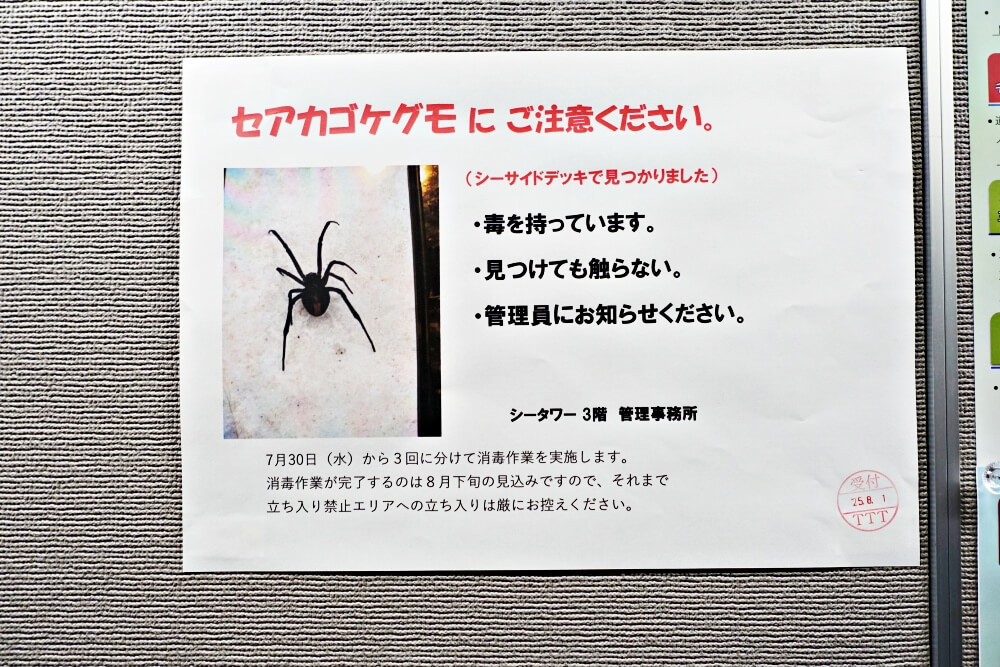 セアカゴケグモ に ご注意ください。
（シーサイドデッキで見つかりました）
・毒を持っています。
・見つけても触らない。
・管理員にお知らせください。
シータワー 3階 管理事務所
7月30日（水）から３回に分けて消毒作業を実施します。
消毒作業が完了するのは８月下旬の見込みですので、それまで
立ち入り禁止エリアへの立ち入りは厳にお控えください。
受付
25.8.1
TTT